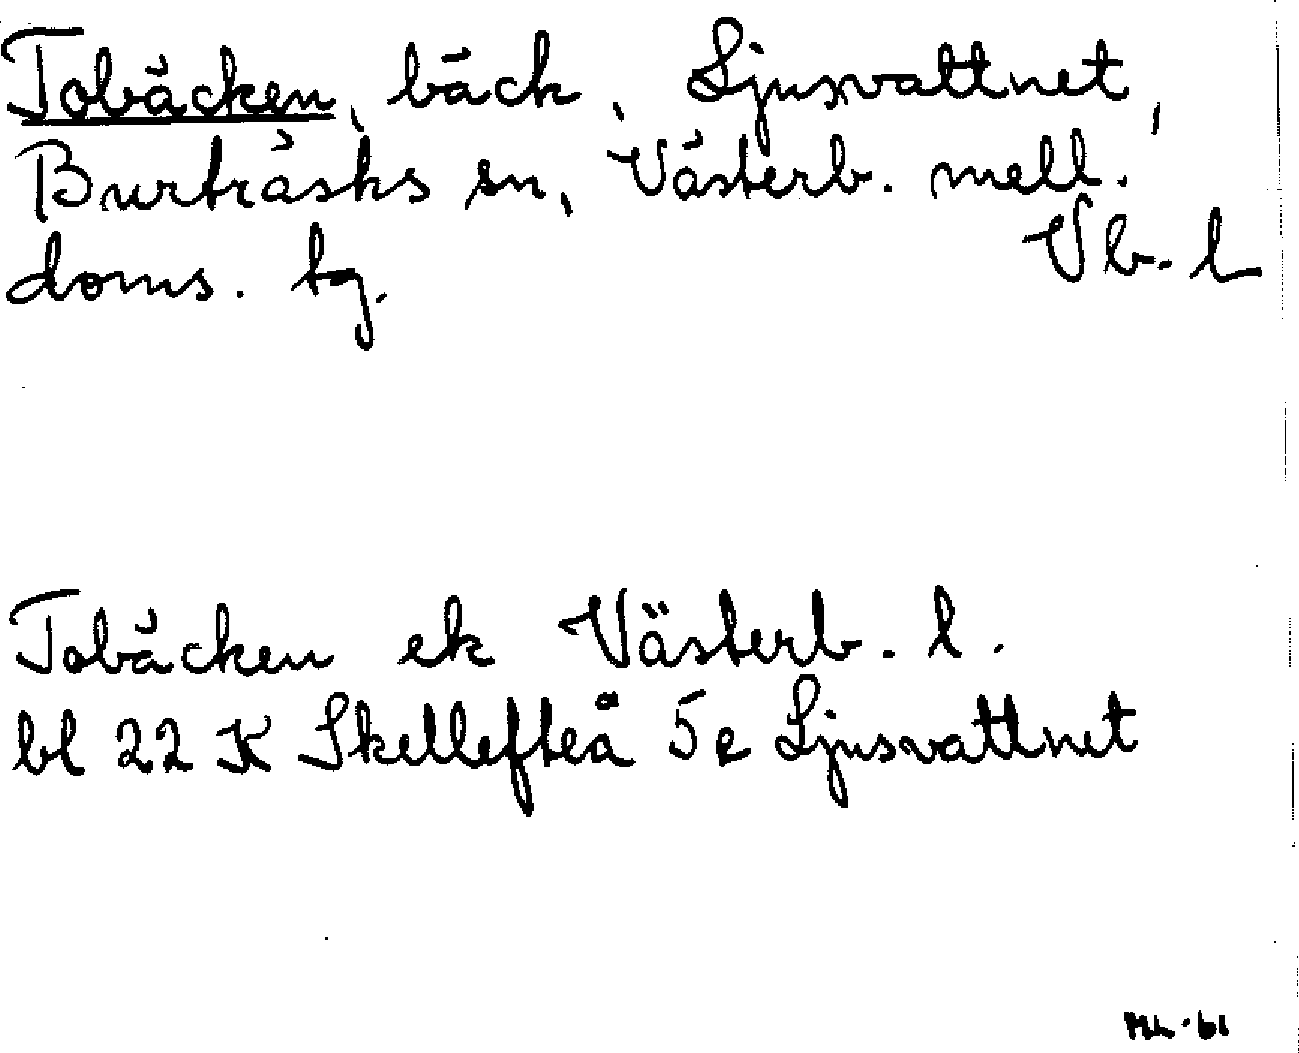 Tobäcken, bäck, Ljusvattnet,
Burträsks sn, Västerb. mell.
doms. tg. Vb. l
Tobäcken ek Västerb. l.
bl 22 K Skellefteå 5e Ljusvattnet
ML-61